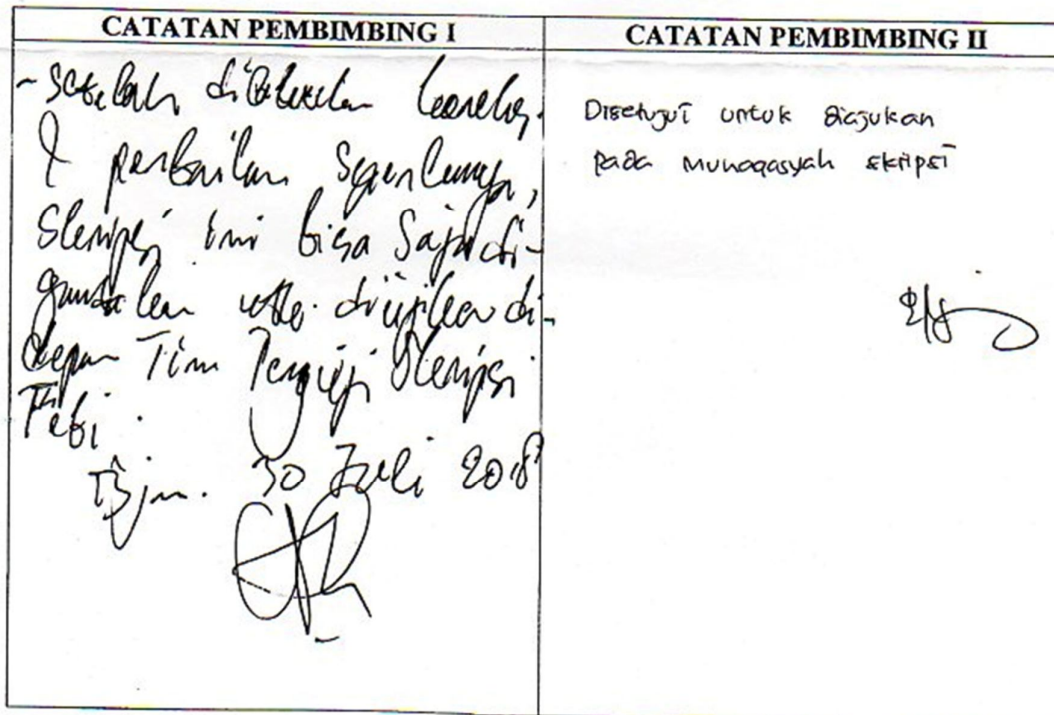 CATATAN PEMBIMBING I
- Setelah dilakukan koreksi
& perbaikan seperlunya,
Skripsi ini bisa saja di-
gunakan utk. diujikan di-
depan Tim Penguji Skripsi
Febi.
Bjm. 30 Juli 2018
CATATAN PEMBIMBING II
Disetujui untuk diajukan
pada munaqasyah skripsi